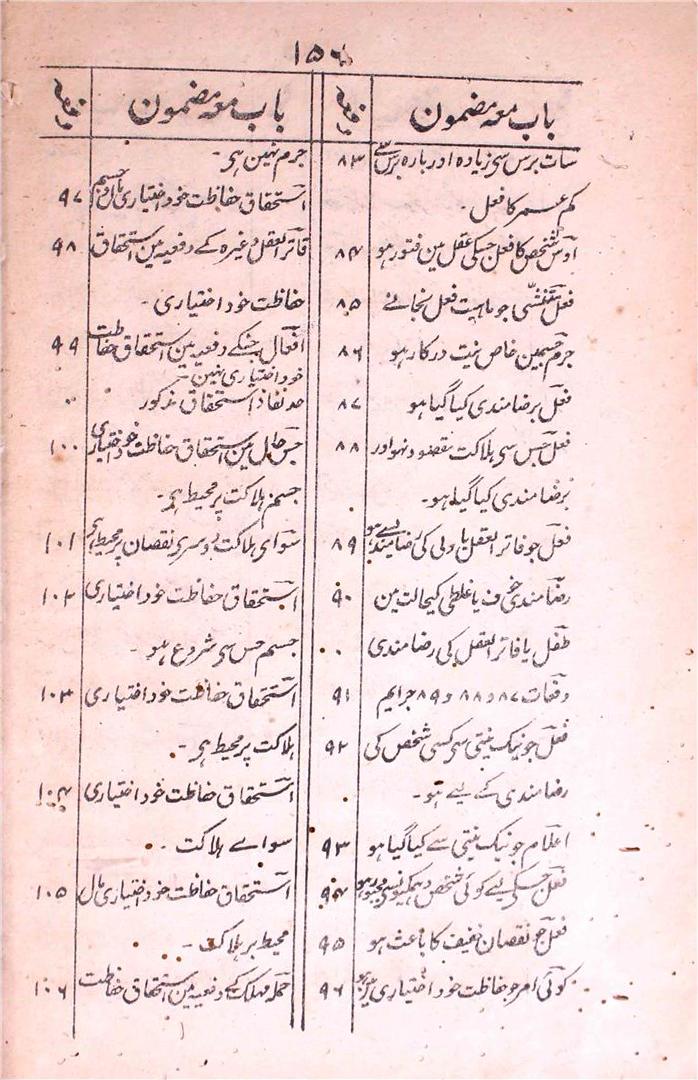 ۱۵۶
باب معه مضمون
دفعه
سات برس سی زیاده اور باره برس سے ۸۳
کم عمر کا فعل ۔
اوس شخص کا فعل جسکی عقل مین فتور ہو ۸۴
فعل متنشّی جو ماہیت فعل نجانے ۸۵
جرم جسمین خاص نیت درکار ہو ۸۶
فعل برضامندی کیا گیا ہو ۸۷
فعل جس سی ہلاکت مقصود نہو اور ۸۸
برضامندی کیا گیا ہو۔
فعل جو فاتر العقل یا ولی کی رضامندی سے ہو ۸۹
رضامندی خوف یا غلطی کیحالت مین ۹۰
طفل یا فاتر العقل کی رضامندی
دفعات ۸۷ و ۸۸ و ۸۹ جرایم ۹۱
فعل جو نیک نیتی سی کسی شخص کی ۹۲
رضامندی کے لیے ہو۔
اعلام جو نیک نیتی سے کیا گیا ہو ۹۳
فعل جسکے لیے کوئی شخص دہمکیونسی مجبور ہو ۹۴
فعل جو نقصان خفیف کا باعث ہو ۹۵
کوئی امر جو حفاظت خود اختیاری مین ہو ۹۶
باب معه مضمون
دفعه
جرم نہین ہی۔
استحقاق حفاظت خود اختیاری مال و جسم ۹۷
فاتر العقل وغیره کے دفعیه مین استحقاق ۹۸
حفاظت خود اختیاری ۔
افعال جنکے دفعیه مین استحقاق حفاظت ۹۹
خود اختیاری نہین ۔
حد نفاذ استحقاق مذکور
جس حال مین استحقاق حفاظت خود اختیاری ۱۰۰
جسم ہلاکت پر محیط ہی۔
سوای ہلاکت دوسری نقصان پر محیط ہی ۱۰۱
استحقاق حفاظت خود اختیاری ۱۰۲
جسم جس سی شروع ہو ۔
استحقاق حفاظت خود اختیاری ۱۰۳
ہلاکت پر محیط ہی ۔
استحقاق حفاظت خود اختیاری ۱۰۴
سواے ہلاکت ۔
استحقاق حفاظت خود اختیاری مال ۱۰۵
محیط بر ہلاکت ۔
حمله مہلک کے دفعیه مین استحقاق حفاظت ۱۰۶